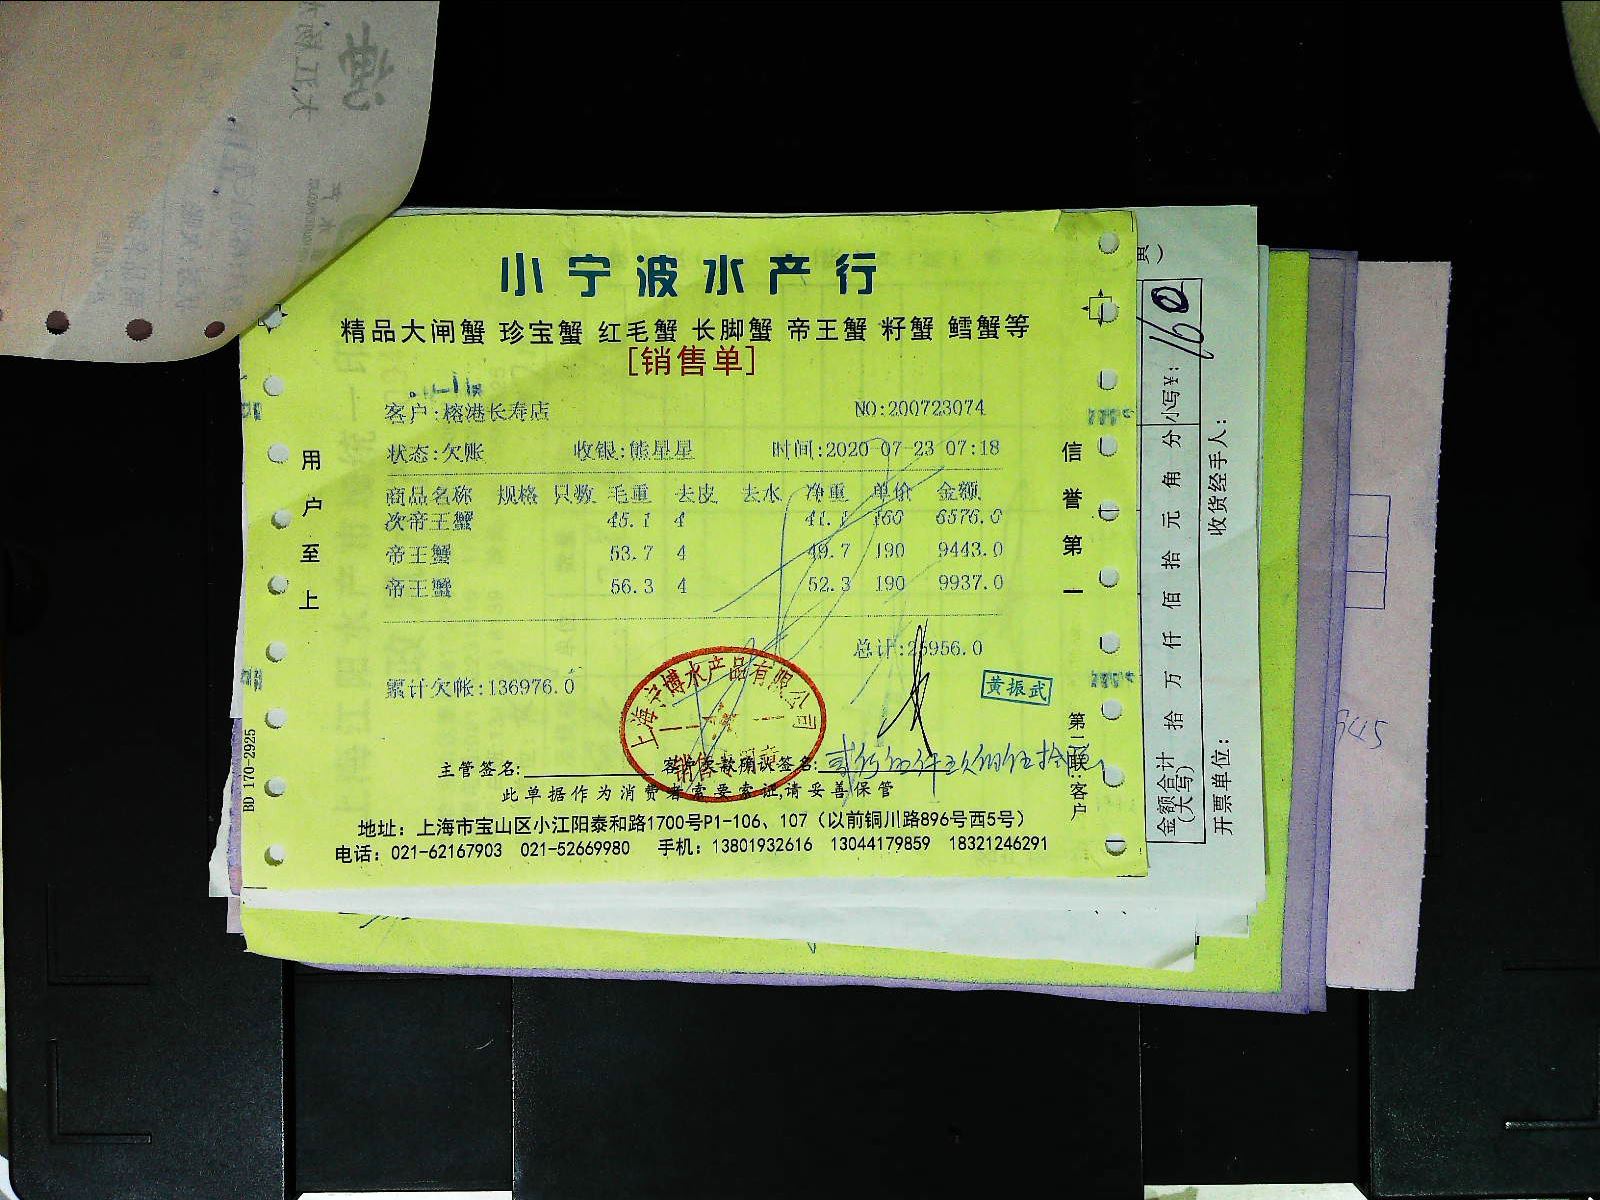 小宁波水产行
精品大闸蟹 珍宝蟹 红毛蟹 长脚蟹 帝王蟹 籽蟹 鳕蟹等
[销售单]
客户:榕港长寿店 NO:200723074
状态:欠账 收银:熊星星 时间:2020-07-23 07:18
商品名称 规格 只数 毛重 去皮 去水 净重 单价 金额
次帝王蟹 45.1 4 41.1 160 6576.0
帝王蟹 53.7 4 49.7 190 9443.0
帝王蟹 56.3 4 52.3 190 9937.0
总计:25956.0
累计欠帐:136976.0
黄振武
上海宁博水产品有限公司
主管签名: 客户欠款确认签名:
此单据作为消费者索要索证,请妥善保管
地址：上海市宝山区小江阳泰和路1700号P1-106、107（以前铜川路896号西5号）
电话：021-62167903 021-52669980 手机：13801932616 13044179859 18321246291
用户至上
信誉第一
第二联:客户
BD 170-2925
金额合计(大写) 拾 万 仟 佰 拾 元 角 分 小写¥: 160
开票单位: 收货经手人:
945